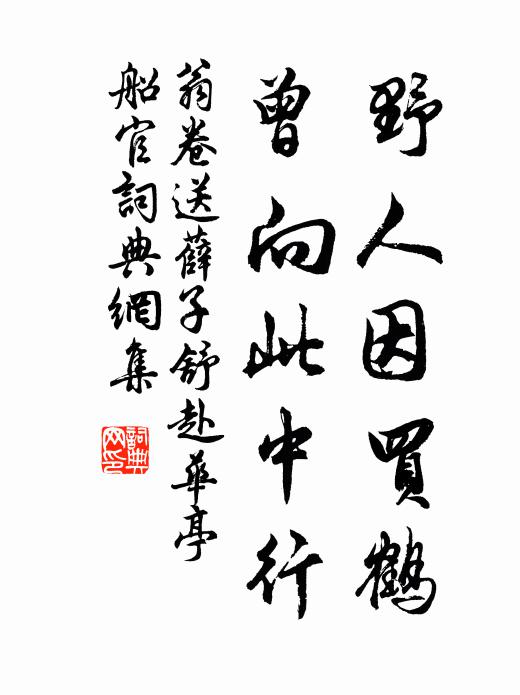 野人因買鶴
曾向此中行
翁卷送薛子舒赴華亭
船官詞典網集
詞典网印